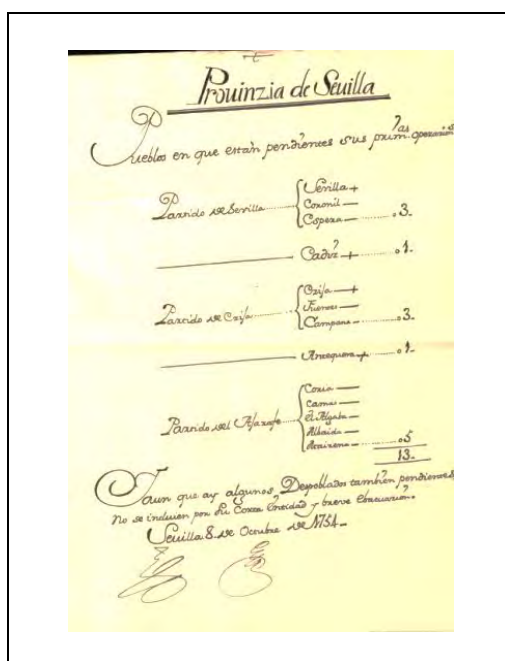 Prouinzia de Seuilla
Pueblos en que están pendientes sus prim.ras operacion.s
Partido de Sevilla
Sevilla +
Coronil —
Espera — 03.
Cadiz + 01.
Partido de Ezija
Ezija +
Fuentes —
Campana — 03.
Antequera + 01.
Partido del Ajarafe
Coria —
Camas —
El Algaba —
Albaida —
Araizena — 05
13.
Y aun que ay algunos Despoblados también pendientes,
No se incluien por su Corta Entidad y breve Ebacuación.
Seuilla 8 de Octubre de 1754.